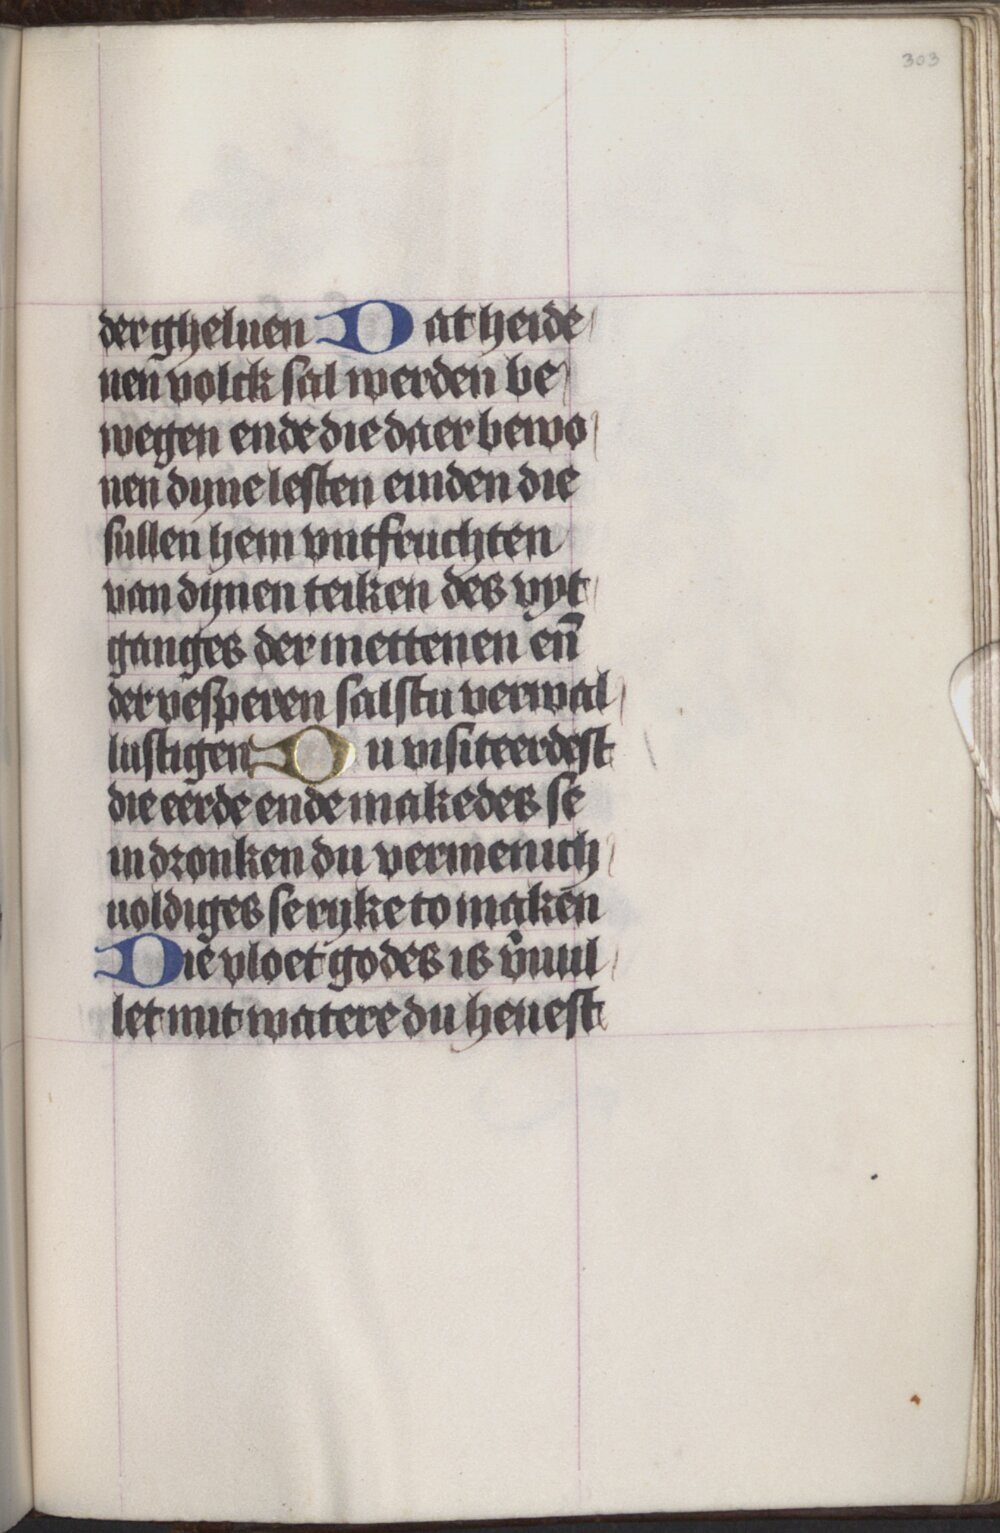 303
der gheluen Dat heide
nen volck sal werden be
wegen ende die daer bewo
nen dyne lesten einden die
sullen hem vntfruchten
van dynen teiken des vyt
ganges der mettenen en̄
der vesperen salstu verwal
lustigen Du visiteerdest
die eerde ende makedes se
in dronken du vermenich
uoldiges se ryke to maken
Die vloet godes is v̄uul
let mit watere du heuest